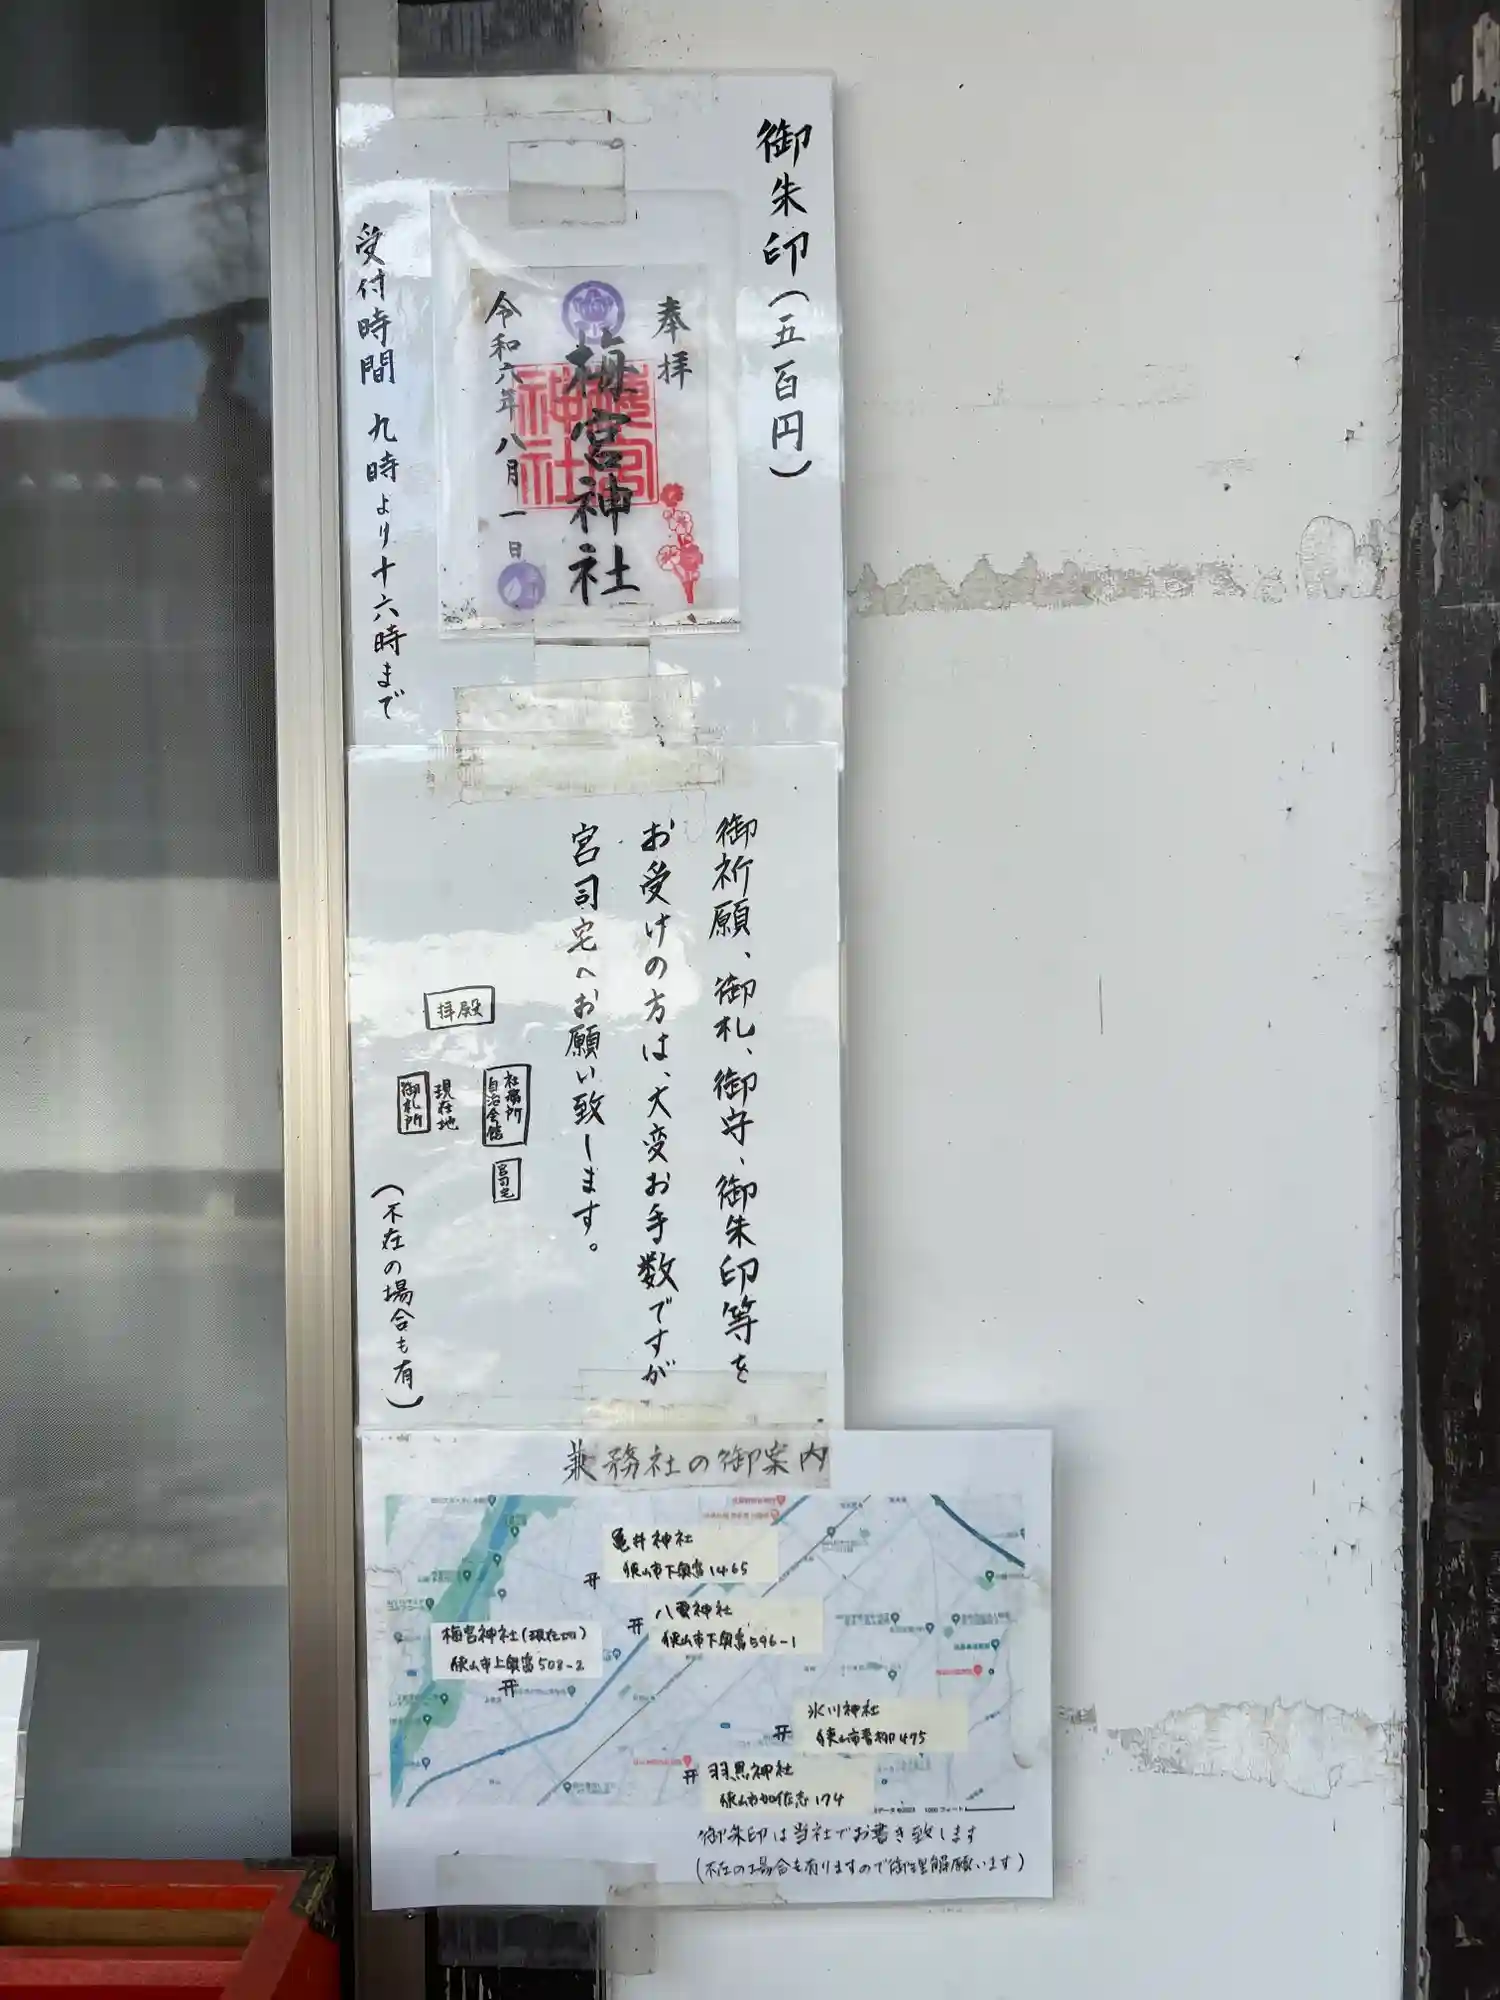 御朱印(五百円)
奉拝
梅宮神社
梅宮神社
令和六年八月一日
受付時間 九時より十六時まで
御祈願、御札、御守、御朱印等を
お受けの方は、大変お手数ですが
宮司宅へお願い致します。
拝殿
社務所
自治会館
現在地
御札所
宮司宅
(不在の場合も有)
兼務社の御案内
亀井神社
狭山市下奥富1465
八雲神社
狭山市下奥富596-1
梅宮神社(現在地)
狭山市上奥富508-2
氷川神社
狭山市青柳475
羽黒神社
狭山市加佐志174
御朱印は当社でお書き致します
(不在の場合も有りますので御理解願います)